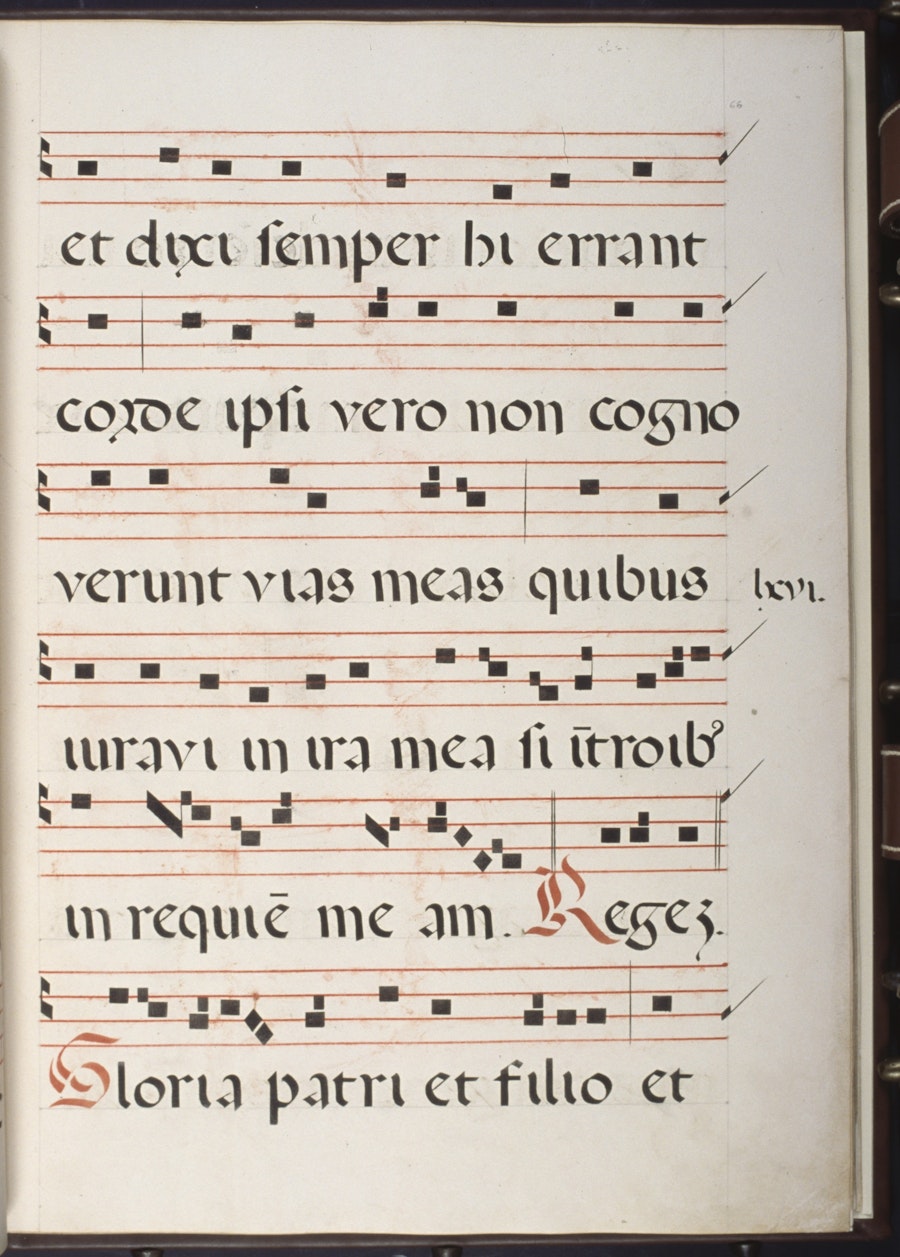 66
et dixi semper hi errant
corde ipsi vero non cogno
verunt vias meas quibus
lxvi.
iuravi in ira mea si ītroibꝰ
in requiē me am. Regeʒ.
Gloria patri et filio et